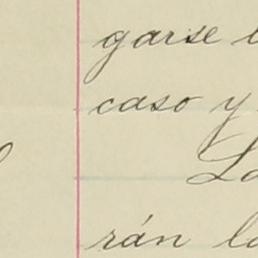 garse
caso y
La
rán la